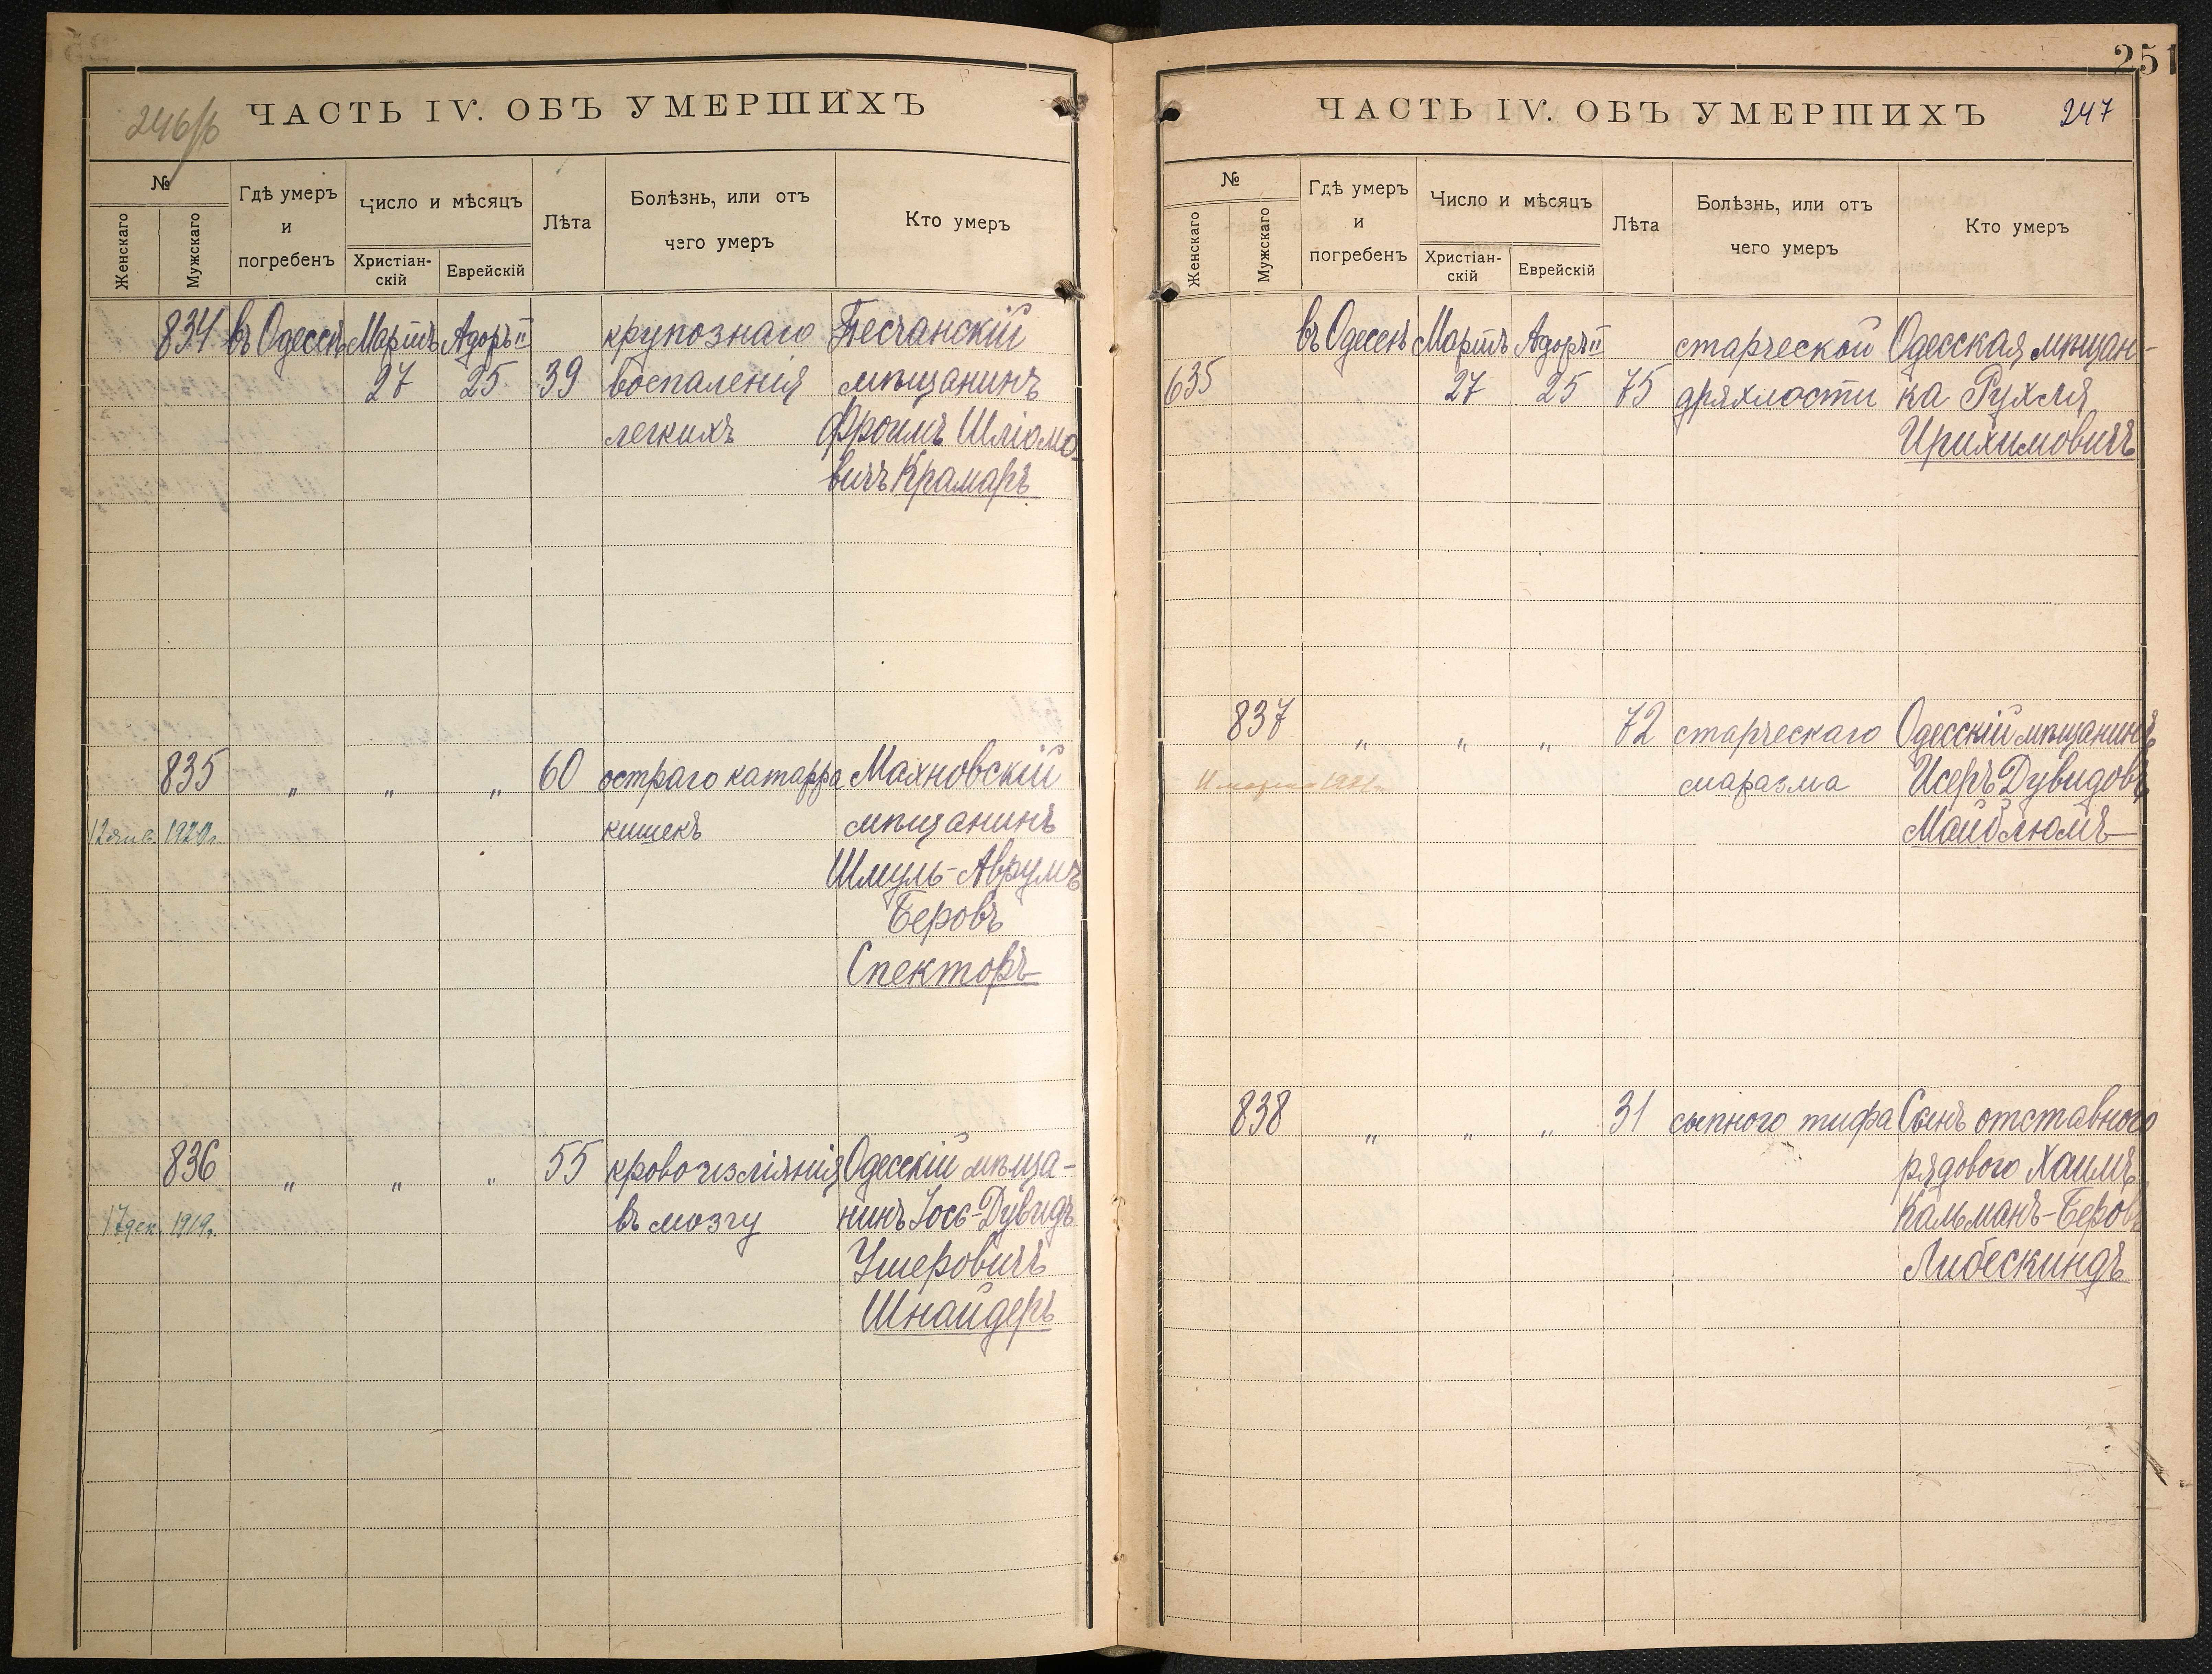 246/б
ЧАСТЬ IV. ОБЪ УМЕРШИХЪ
№
Женскаго
Мужскаго
Гдѣ умеръ
и
погребенъ
Число и мѣсяцъ
Христіан-
скій
Еврейскій
Лѣта
Болѣзнь, или отъ
чего умеръ
Кто умеръ
834 въ Одессѣ Мартъ Адоръ II крупознаго Песчанскій
27 25 39 воспаленія мѣщанинъ
легкихъ Фроимъ Шліомо-
вичъ Крамаръ
835 " " " 60 остраго катарра Махновскій
12 янв. 1920г. кишекъ мѣщанинъ
Шмуль-Аврумъ
Беровъ
Спекторъ
836 " " " 55 кровоизліянія Одесскій мѣща-
17 дек. 1919г. въ мозгу нинъ Іось-Дувидъ
Ушеровичъ
Шнайдеръ
251
ЧАСТЬ IV. ОБЪ УМЕРШИХЪ
247
№
Женскаго
Мужскаго
Гдѣ умеръ
и
погребенъ
Число и мѣсяцъ
Христіан-
скій
Еврейскій
Лѣта
Болѣзнь, или отъ
чего умеръ
Кто умеръ
въ Одессѣ Мартъ Адоръ II старческой Одесская мѣщан-
635 27 25 75 дряхлости ка Рухля
Ирихимовичъ
837 " " " 72 старческаго Одесскій мѣщанинъ
маразма Исеръ Дувидовъ
Майблюмъ
838 " " " 31 сыпного тифа Сынъ отставного
рядового Хаимъ
Кальманъ-Беровъ
Либескиндъ